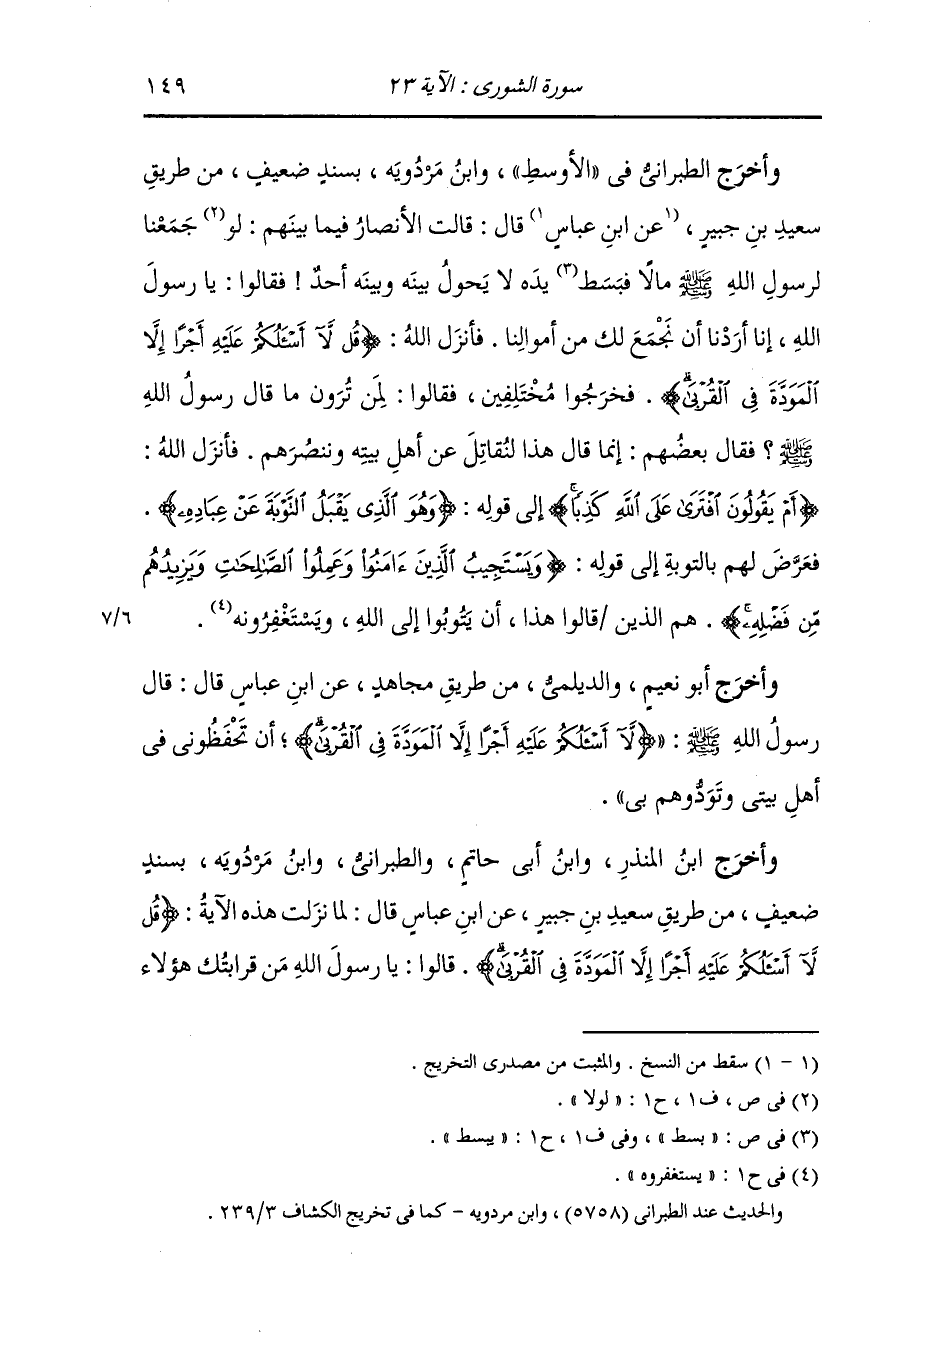 سورة الشورى : الآية ٢٣ ١٤٩
وأخرَج الطبرانىُّ فى «الأوسطِ» ، وابنُ مَرْدُويَه ، بسندٍ ضعيفٍ ، من طريقِ
سعيدِ بنِ جبيرٍ ، (١عن ابنِ عباسٍ١) قال : قالت الأنصارُ فيما بينَهم : لو(٢) جَمَعْنا
لرسولِ اللهِ ﷺ مالًا فبَسَط(٣) يدَه لا يَحولُ بينَه وبينَه أحدٌ ! فقالوا : يا رسولَ
اللهِ ، إنا أرَدْنا أن نَجْمَعَ لك من أموالِنا . فأنزَل اللهُ : ﴿قُل لَّآ أَسْـَٔلُكُمْ عَلَيْهِ أَجْرًا إِلَّا
ٱلْمَوَدَّةَ فِى ٱلْقُرْبَىٰۗ﴾ . فخرَجُوا مُخْتَلِفِين ، فقالوا : لِمَن تُرَون ما قال رسولُ اللهِ
ﷺ ؟ فقال بعضُهم : إنما قال هذا لنُقاتِلَ عن أهلِ بيتِه وننصُرَهم . فأنزَل اللهُ :
﴿أَمْ يَقُولُونَ ٱفْتَرَىٰ عَلَى ٱللَّهِ كَذِبًاۖ﴾ إلى قولِه : ﴿وَهُوَ ٱلَّذِى يَقْبَلُ ٱلتَّوْبَةَ عَنْ عِبَادِهِۦ﴾ .
فعَرَّضَ لهم بالتوبةِ إلى قولِه : ﴿وَيَسْتَجِيبُ ٱلَّذِينَ ءَامَنُوا۟ وَعَمِلُوا۟ ٱلصَّـٰلِحَـٰتِ وَيَزِيدُهُم
مِّن فَضْلِهِۦۚ﴾ . هم الذين /قالوا هذا ، أن يَتُوبُوا إلى اللهِ ، ويَسْتَغْفِرُونه(٤) . ٧/٦
وأخرَج أبو نعيمٍ ، والديلمىُّ ، من طريقِ مجاهدٍ ، عن ابنِ عباسٍ قال : قال
رسولُ اللهِ ﷺ : «﴿لَّآ أَسْـَٔلُكُمْ عَلَيْهِ أَجْرًا إِلَّا ٱلْمَوَدَّةَ فِى ٱلْقُرْبَىٰۗ﴾ ؛ أن تَحْفَظُونى فى
أهلِ بيتى وتَوَدُّوهم بى» .
وأخرَج ابنُ المنذرِ ، وابنُ أبى حاتمٍ ، والطبرانىُّ ، وابنُ مَرْدُويَه ، بسندٍ
ضعيفٍ ، من طريقِ سعيدِ بنِ جبيرٍ ، عن ابنِ عباسٍ قال : لما نزَلت هذه الآيةُ : ﴿قُل
لَّآ أَسْـَٔلُكُمْ عَلَيْهِ أَجْرًا إِلَّا ٱلْمَوَدَّةَ فِى ٱلْقُرْبَىٰۗ﴾ . قالوا : يا رسولَ اللهِ مَن قرابتُك هؤلاء
(١ - ١) سقط من النسخ . والمثبت من مصدرى التخريج .
(٢) فى ص ، ف١ ، ح١ : « لولا » .
(٣) فى ص : « بسط » ، وفى ف١ ، ح١ : « يبسط » .
(٤) فى ح١ : « يستغفروه » .
والحديث عند الطبرانى (٥٧٥٨) ، وابن مردويه - كما فى تخريج الكشاف ٢٣٩/٣ .